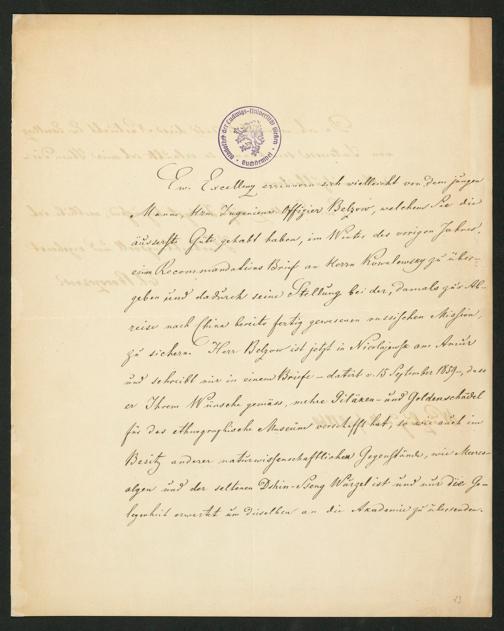 Ew. Excellenz erinnern sich vielleicht von dem jungen
Manne, Hrn. Ingenieur Offizier Belzow, welchem Sie die
äusserste Güte gehabt haben, im Winter des vorigen Jahres,
einen Recommandations Brief an Herrn Kowalewsky zu über-
geben und dadurch seine Stellung bei der, damals zur Ab-
reise nach China bereits fertig gewesenen russischen Mission,
zu sichern. Herr Belzow ist jetzt in Nicolajewsk am Amúr
und schreibt mir in einem Briefe – datirt v. 15 September 1859 –, dass
er Ihrem Wünsche gemäss, mehre Giläken- und Goldenschädel
für das ethnographische Museum verschafft hat, so wie auch im
Besitz anderer naturwissenschaftlichen Gegenstände, wie Meeres-
algen und der seltenen Dshin-Seng Wurzel ist und nur die Ge-
legenheit erwartet um dieselben an die Akademie zu übersenden.